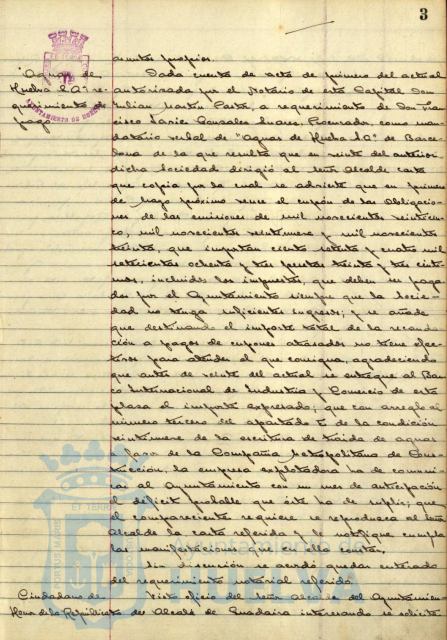 3
asuntos propios.
"Aguas de
Huelva S.A." re-
querimiento de
pago
AYUNTAMIENTO DE HUELVA
Dada cuenta de acta de primero del actual
autorizada por el Notario de esta Capital Don
Julian Martin Pastor, a requerimiento de Don Fran
cisco Javier Gonzalez Suarez, Procurador, como man-
datario verbal de "Aguas de Huelva S.A." de Barce-
lona de la que resulta que en veinte del anterior
dicha Sociedad dirigió al señor Alcalde carta
que copia por la cual se advierte que en primero
de Mayo próximo vence el cupon de las obligacio-
nes de las emisiones de mil novecientos veinticin-
co, mil novecientos veintinueve y mil novecientos
treinta, que importan ciento setenta y cuatro mil
setecientas ochenta y tres pesetas treinta y tres cénti-
mos, incluidos los impuestos, que deben ser paga-
dos por el Ayuntamiento siempre que la Socie-
dad no tenga suficientes ingresos; y se añade
que destinando el importe total de la recauda-
ción a pagos de cupones atrasados no tiene efec-
tivos para atender el que consigna, agradeciendo
que antes de veinte del actual se entregue al Ban-
co Internacional de Industria y Comercio de esta
plaza el importe expresado; que con arreglo al
número tercero del apartado E de la condición
veintinueve de la escritura de traida de aguas
a favor de la Compañia Metropolitana de Cons-
trucción, la empresa explotadora ha de comuni-
car al Ayuntamiento con un mes de anticipación
el déficit probable que éste ha de suplir; que
el compareciente requiere se reproduzca al señor
Alcalde la carta referida y le notifique cumpla
las manifestaciones que en ella constan.
Sin discusión se acordó quedar enterado
del requerimiento notarial referido.
Ciudadano de
Honor de la República
Visto oficio del señor Alcalde del Ayuntamien-
to de Alcalá de Guadaira interesando se solicite